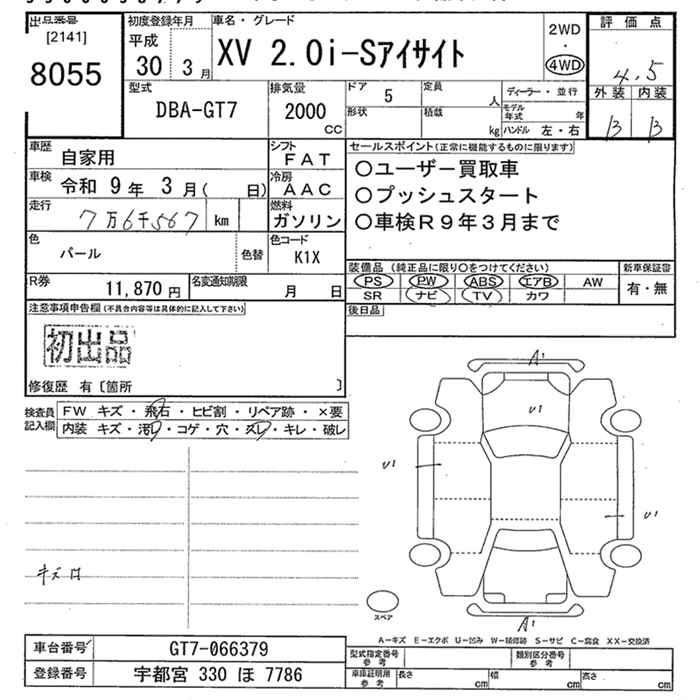 出品番号
[2141]
8055
初度登録年月
平成
30 3月
車名・グレード
XV 2.0i-Sアイサイト
2WD
・
4WD
評価点
4.5
外装 内装
B B
型式
DBA-GT7
排気量
2000
CC
ドア 5
定員 人
形状
積載 kg
ディーラー・並行
モデル年式 年
ハンドル 左・右
車歴 自家用
シフト
FAT
車検 令和 9年 3月( 日)
冷房
AAC
走行 7万6千567 km
燃料
ガソリン
色
パール
色替
色コード
K1X
R券 11,870円
名変通知期限 月 日
セールスポイント(正常に機能するものに限ります)
○ユーザー買取車
○プッシュスタート
○車検R9年3月まで
装備品(純正品に限り○をつけてください)
PS PW ABS エアB AW
SR ナビ TV カワ
新車保証書
有・無
後日品
注意事項申告欄(不具合内容等は具体的に記入して下さい)
初出品
修復歴 有〔箇所 〕
検査員
記入欄
FW キズ・飛石・ヒビ割・リペア跡・×要
内装 キズ・汚レ・コゲ・穴・スレ・キレ・破レ
A1
U1
U1
U1
A1
スペア
A-キズ E-エクボ U-凹み W-補修跡 S-サビ C-腐食 XX-交換済
車台番号 GT7-066379
登録番号 宇都宮 330 ほ 7786
型式指定番号
参考
類別区分番号
参考
車庫証明用
参考
長さ cm
幅 cm
高さ cm